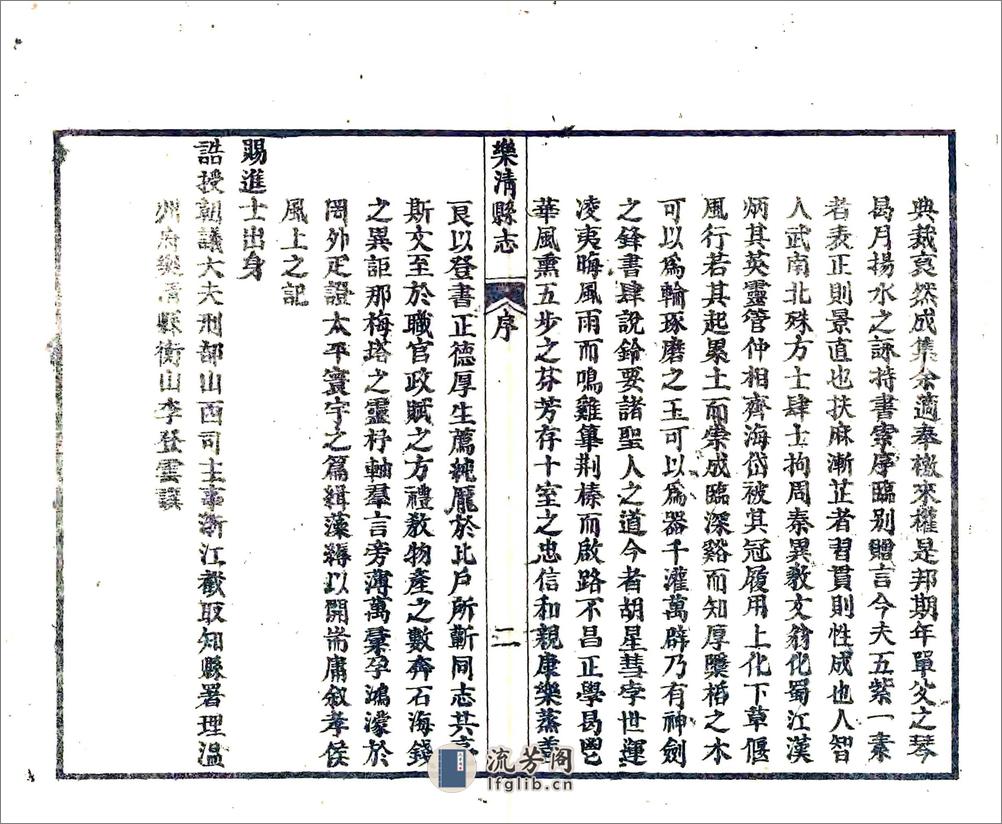 典裁裒然成集余適奉檄來權是邦期年單父之琴
曷月揚水之詠持書索序臨别贈言今夫五紫一素
者表正則景直也扶麻漸芷者習貫則性成也人智
人武南北殊方士肆士拘周秦異教文翁化蜀江漢
炳其英靈管仲相齊海岱被其冠履用上化下草偃
風行若其起累土而崇成臨深谿而知厚櫽栝之木
可以爲輪琢磨之玉可以爲器千灌萬辟乃有神劍
之鋒書肆說鈴要諸聖人之道今者胡星彗孛世運
凌夷晦風雨而鳴雞篳荆榛而啟路不昌正學曷鬯
華風熏五步之芬芳存十室之忠信和親康樂蒸善
樂清縣志
序
二
良以登書正德厚生薦純厖於比戶所蘄同志共享
斯文至於職官政賦之方禮教物產之數奔石海錢
之異詎那梅塔之靈杼軸羣言旁薄萬彙孕鴻濛於
罔外疋證太平寰宇之篇緝藻縟以開耑庸敘孝侯
風土之記
賜進士出身
誥授朝議大夫刑部山西司主事浙江截取知縣署理溫
州府樂清縣衡山李登雲譔
流芳阁
lfglib.cn